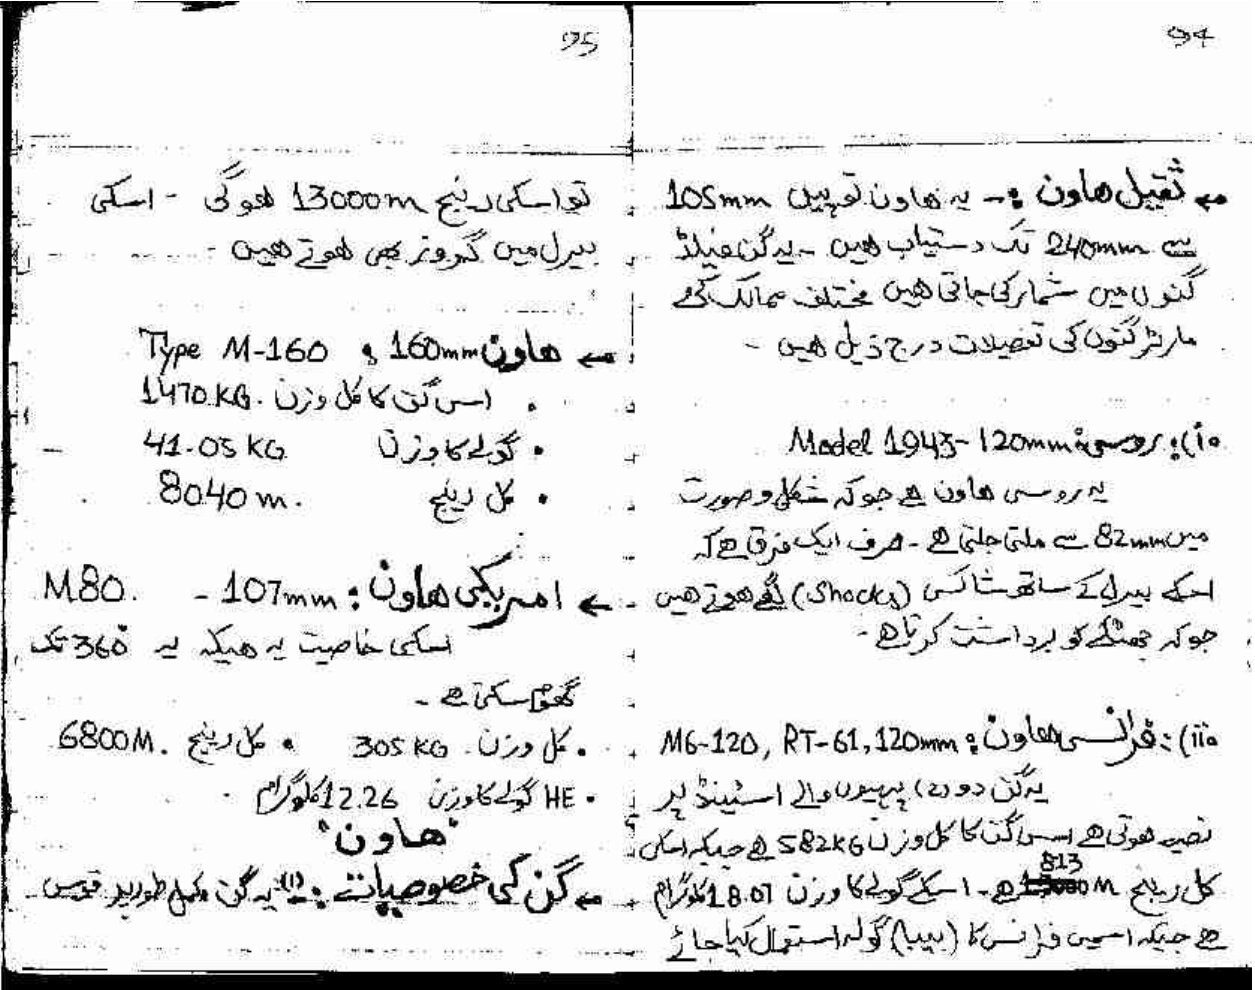 94
← ثقیل ھاون :- یہ ھاون توپیں 105mm
سے 240mm تک دستیاب ھیں - یہ گن فیلڈ
گنوں میں شمار کی جاتی ھیں مختلف ممالک کی
مارٹر گنوں کی تفصیلات درج ذیل ھیں -
(i : روسی : Model 1943-120mm
یہ روسی ھاون ھے جو کہ شکل و صورت
میں 82mm سے ملتی جلتی ھے - صرف ایک فرق ھے کہ
اسکے بیرل کے ساتھ شاکس (Shocks) لگے ھوتے ھیں
جو کہ جھٹکے کو برداشت کرتا ھے -
(ii : فرانسیسی ھاون : M6-120, RT-61, 120mm
یہ گن دو (2) پہیوں والے اسٹینڈ پر
نصب ھوتی ھے اس گن کا کل وزن 582KG ھے جبکہ اسکی
کل رینج 813 M ھے - اسکے گولے کا وزن 18.07 کلوگرام
ھے جبکہ اسمیں فرانس کا گولہ استعمال کیا جائے
95
تو اسکی رینج 13000m ھو گی - اسکی
بیرل میں گروز بھی ھوتے ھیں -
← ھاون 160mm : Type M-160
. اس گن کا کل وزن . 1470.KG
• گولے کا وزن 41.05 KG
• کل رینج 8040 m.
← امریکی ھاون : 107mm - M80.
اسکی خاصیت یہ ھیکہ یہ 360° تک
گھوم سکتی ھے -
. کل وزن . 305 KG • کل رینج . 6800M
• HE گولے کا وزن 12.26 کلوگرام .
"ھاون"
← گن کی خصوصیات : (1) یہ گن مکمل طور پر قوسی